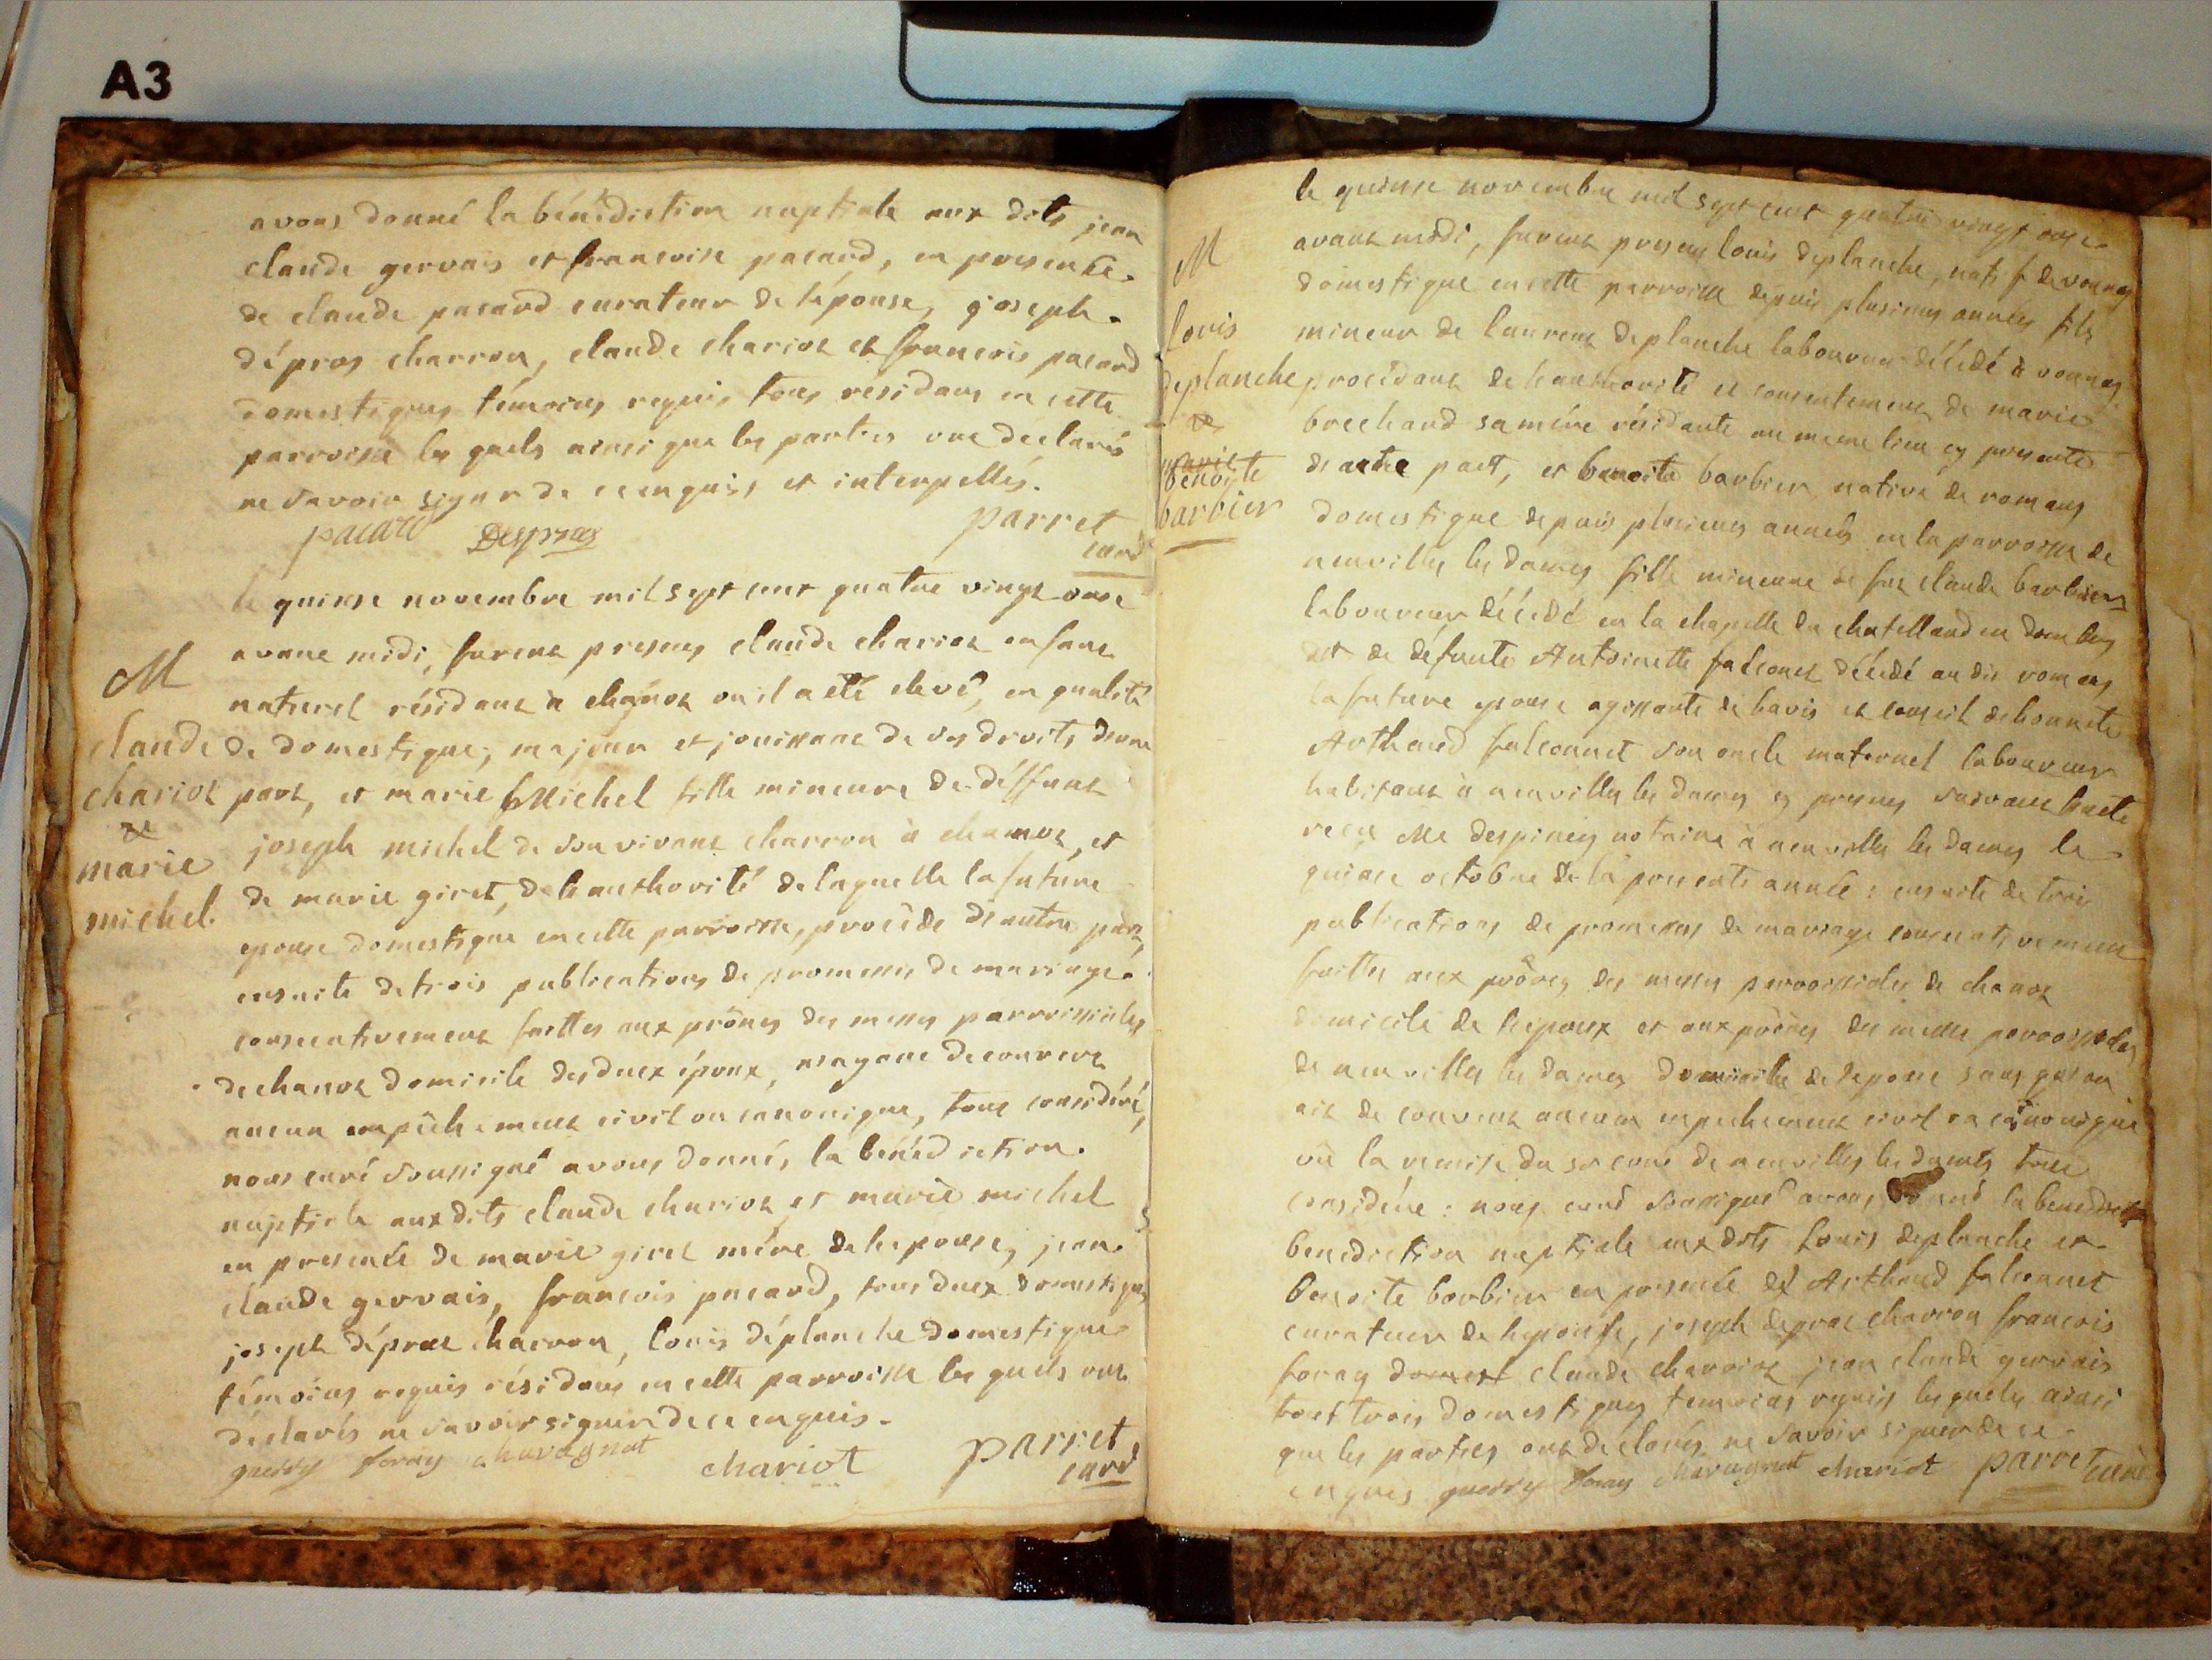 A3
avons donné la bénédiction nuptiale aux dits jean
claude gervais et francoise pacard, en presence
de claude pacard curateur de lépouse, joseph
dépras charron, claude chariot et francois pacard
domestiques témoins requis tous résidans en cette
parroisse les quels ainsi que les parties ont déclarés
ne savoir signer de ce enquis et interpellés.
pacard Despras parret
curé
le quinse novembre mil sept cent quatre vingt onse
avant midi, furent presens claude chariot enfant
naturel résidant à chanos ou il a été elevé, en qualité
de domestique, majeur et jouissant de ses droits d'une
part, et marie Michel fille mineure de deffunt
joseph michel de son vivant charron à chanos, et
de marie giret, de lauthorité de laquelle la future
epouse domestique en cette parroisse, procède d'autre part,
ensuite de trois publications de promesses de mariage
consecutivement faittes aux prônes des messes parroissiales
de chanos domicile des deux époux, n'ayant decouvert
aucun empêchement civil ou canonique, tout considéré,
nous curé soussigné avons donnés la bénédiction
nuptiale aux dits claude chariot et marie michel
en presence de marie giret mère de lepouse, jean
claude gervais, francois pacard, tous deux domestiques
joseph dépras charron, louis déplanche domestique
témoins requis résidans en cette parroisse les quels ont
déclarés ne savoir signer de ce enquis.
guerry foray chavagnat chariot parret
curé
M
claude
chariot
et
marie
michel
le quinse novembre mil sept cent quatre vingt onse
avant midi, furent presens louis deplanche, natif de vonnas
domestique en cette parroisse depuis plusieurs années fils
mineur de laurent deplanche laboureur décédé à vonnas
procédant de lauthorité et consentement de marie
brechard sa mère résidante au meme lieu cy presente
d'autre part, et benoite barbier native de romans
domestique depuis plusieurs années en la parroisse de
neuvilles les dames fille mineure de feu claude barbier
laboureur décédé en la chapelle du chatellard en dombes
et de défunte Antoinette falconet décédé au dit romans
la future epouse agissante de lavis et conseil de
Arthaud falconnet son oncle maternel laboureur
habitant à neuvilles les dames cy presens suivant lacte
reçu Me despiney notaire à neuvilles les dames le
quinse octobre de la presente année : ensuite de trois
publications de promesses de mariage consecutivement
faittes aux prônes des messes parroissiales de chanos
domicile de lepoux et aux prônes des messes parroissiales
de neuvilles les dames domicile de lepouse sans quon
ait decouvert aucun empechement civil ou canonique
vû la remise du sr curé de neuvilles les dames tout
considéré : nous curé soussigné avons donné la benedict
benediction nuptiale aux dits louis deplanche et
benoite barbier en presence de Arthaud falconnet
curateur de lepouse, joseph depras charron francois
foray domest claude charriot jean claude gervais
tous trois domestiques temoins requis lesquels ainsi
que les parties ont déclarés ne savoir signer de ce
enquis guerry foray chavagnat chariot parret curé
M
louis
deplanche
et
marie
benoite
barbier